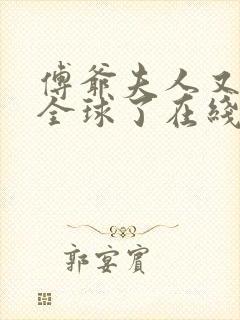 傅爺夫人又
全球了在綫
郭宴賓